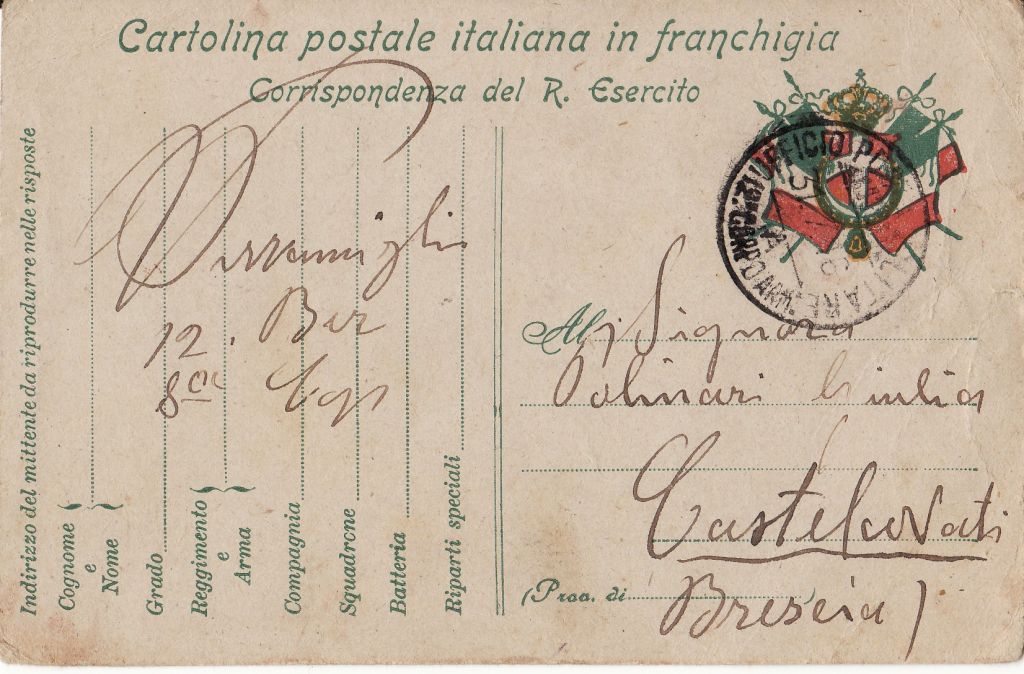 Cartolina postale italiana in franchigia
Corrispondenza del R. Esercito
Indirizzo del mittente da riprodurre nelle risposte
Cognome e Nome
Grado
Reggimento e Arma
Compagnia
Squadrone
Batteria
Riparti speciali
12. Ber
8ª Cop
UFFICIO POSTA MILITARE
Al Signora
Polinari Giulia
Castelcovati
(Prov. di Brescia)